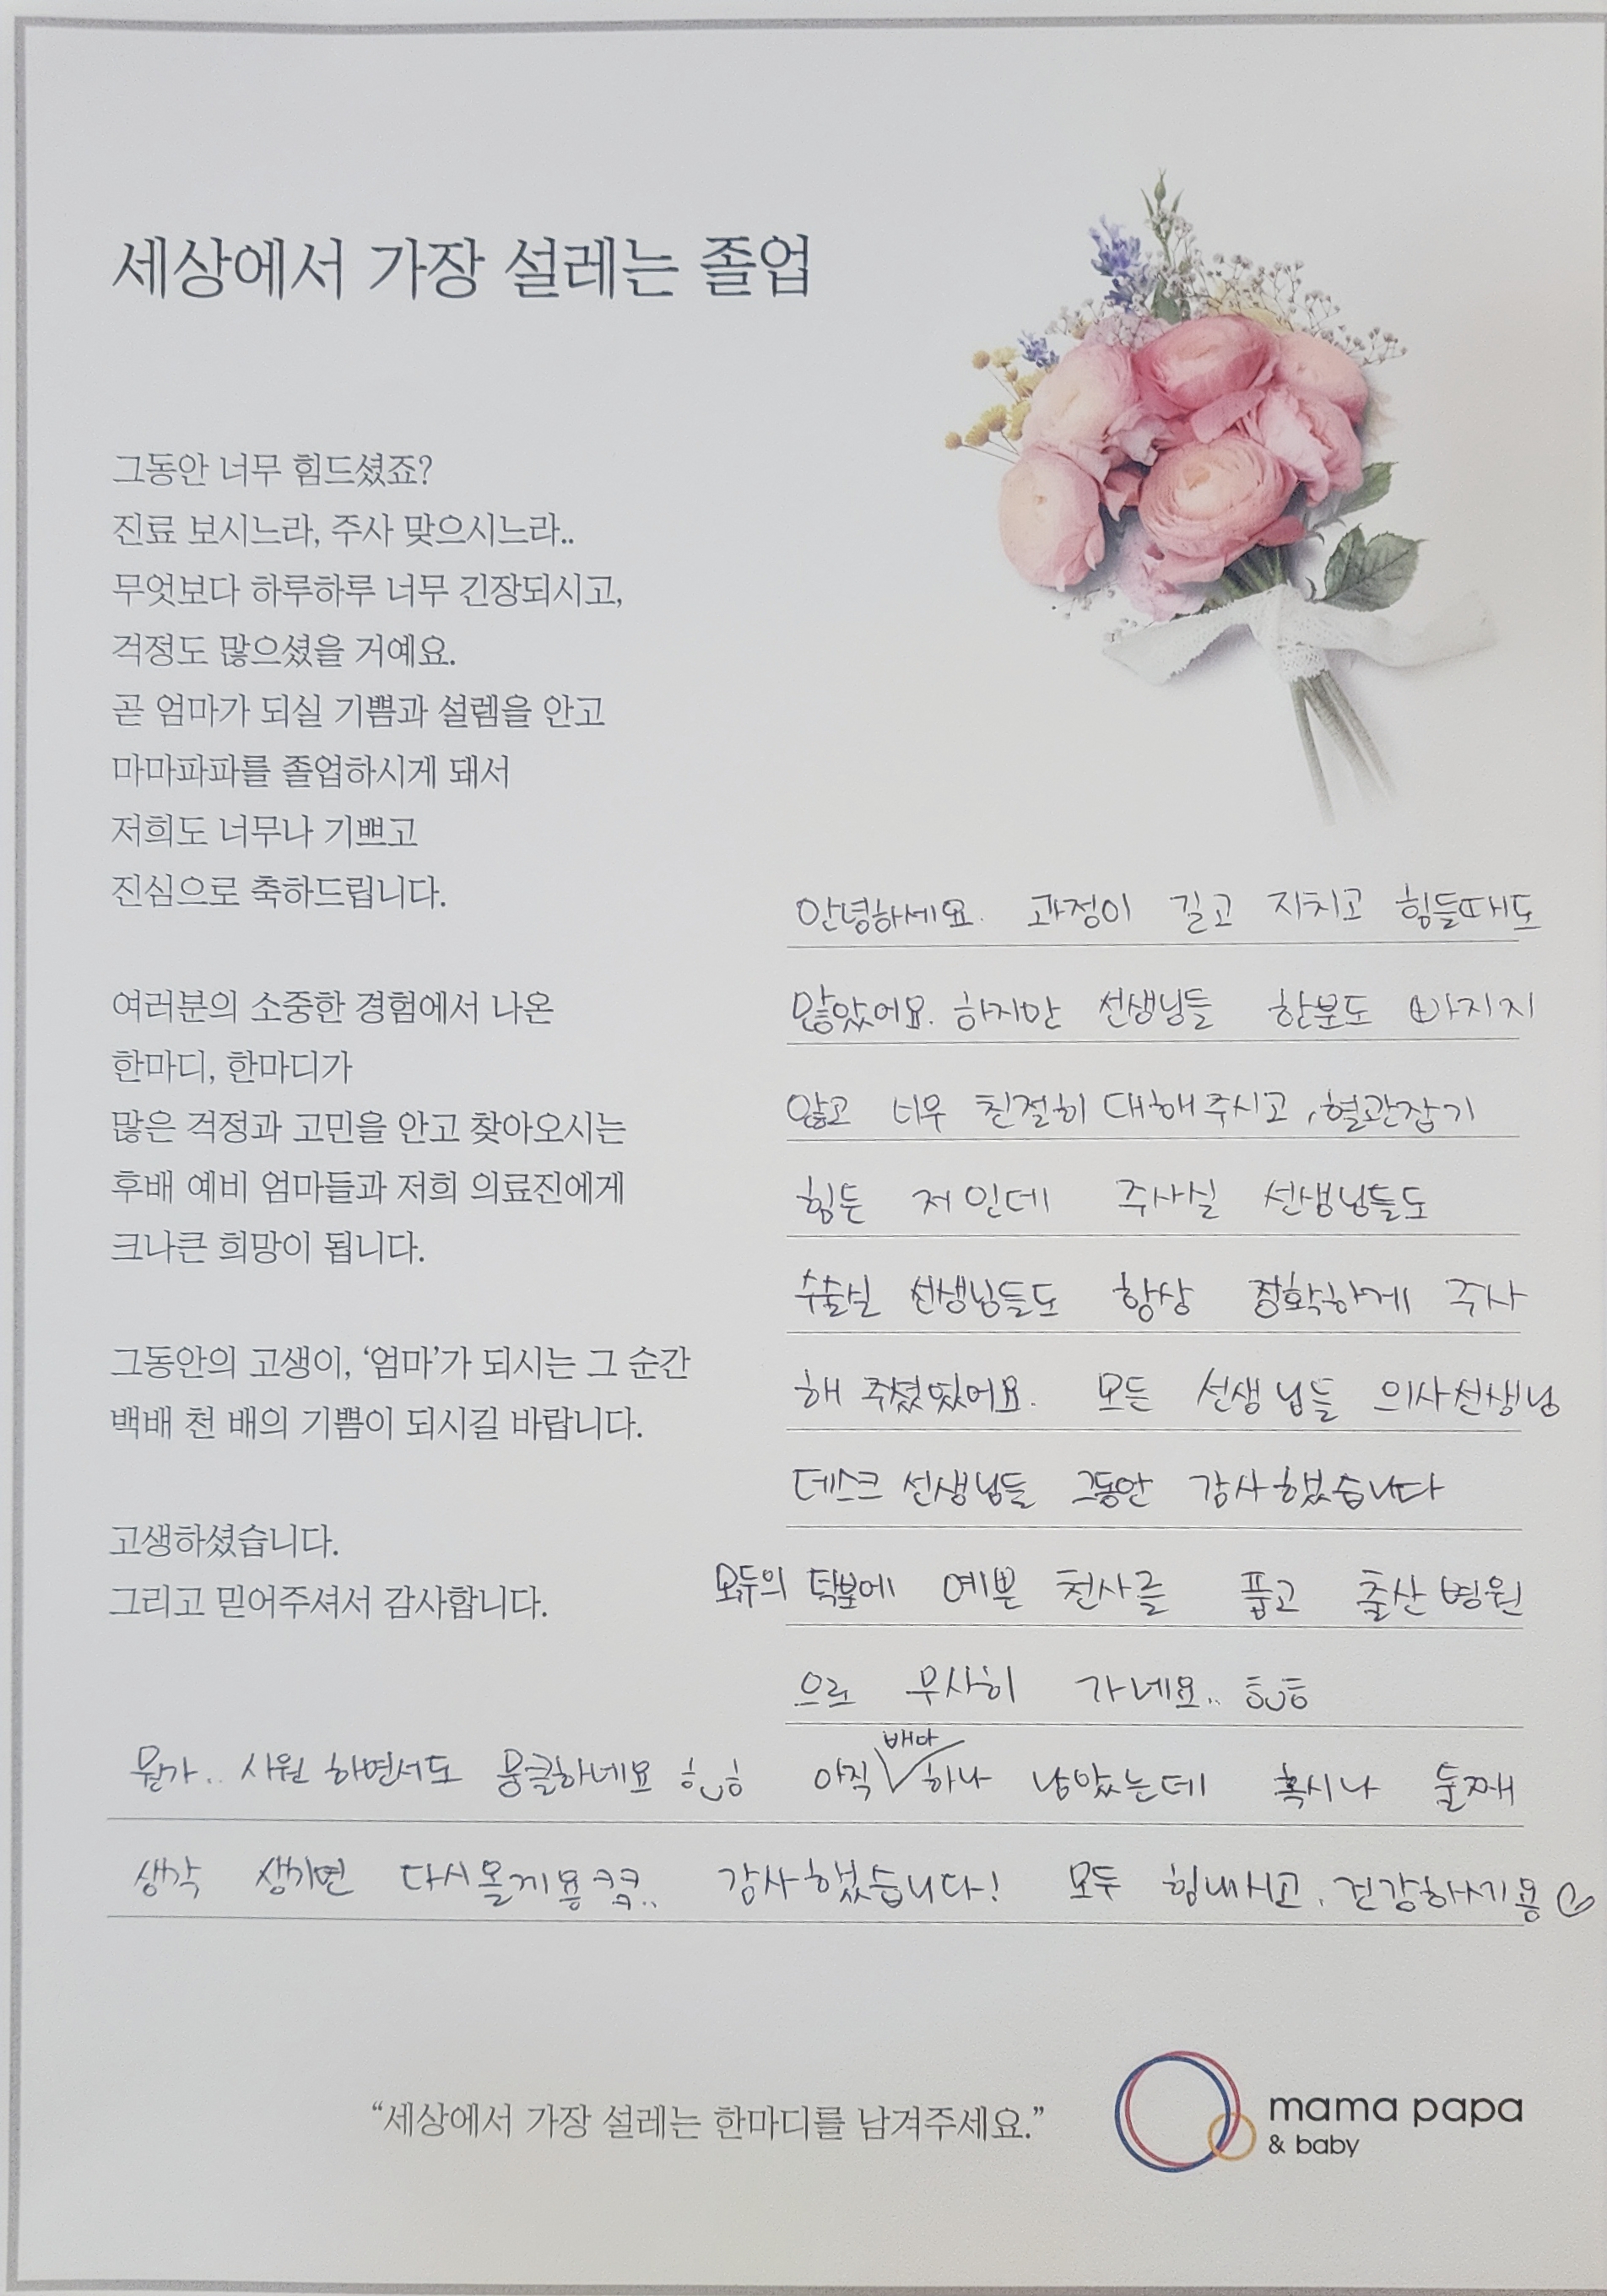 세상에서 가장 설레는 졸업
그동안 너무 힘드셨죠?
진료 보시느라, 주사 맞으시느라..
무엇보다 하루하루 너무 긴장되시고,
걱정도 많으셨을 거예요.
곧 엄마가 되실 기쁨과 설렘을 안고
마마파파를 졸업하시게 돼서
저희도 너무나 기쁘고
진심으로 축하드립니다.
여러분의 소중한 경험에서 나온
한마디, 한마디가
많은 걱정과 고민을 안고 찾아오시는
후배 예비 엄마들과 저희 의료진에게
크나큰 희망이 됩니다.
그동안의 고생이, ‘엄마’가 되시는 그 순간
백배 천 배의 기쁨이 되시길 바랍니다.
고생하셨습니다.
그리고 믿어주셔서 감사합니다.
안녕하세요. 과정이 길고 지치고 힘들때도
많았어요. 하지만 선생님들 한분도 빠지지
않고 너무 친절히 대해주시고, 혈관잡기
힘든 저인데 주사실 선생님들도
수술실 선생님들도 항상 정확하게 주사
해 주셨었어요. 모든 선생님들 의사선생님
데스크 선생님들 그동안 감사했습니다
모두의 덕분에 예쁜 천사를 품고 출산병원
으로 무사히 가네요.. ㅎㅎ
뭔가.. 시원 하면서도 뭉클하네요 ㅎㅎ 아직 배아 하나 남았는데 혹시나 둘째
생각 생기면 다시올게용 ㅋㅋㅋ.. 감사했습니다! 모두 힘내시고, 건강하시기용♡
“세상에서 가장 설레는 한마디를 남겨주세요.”
mama papa
& baby